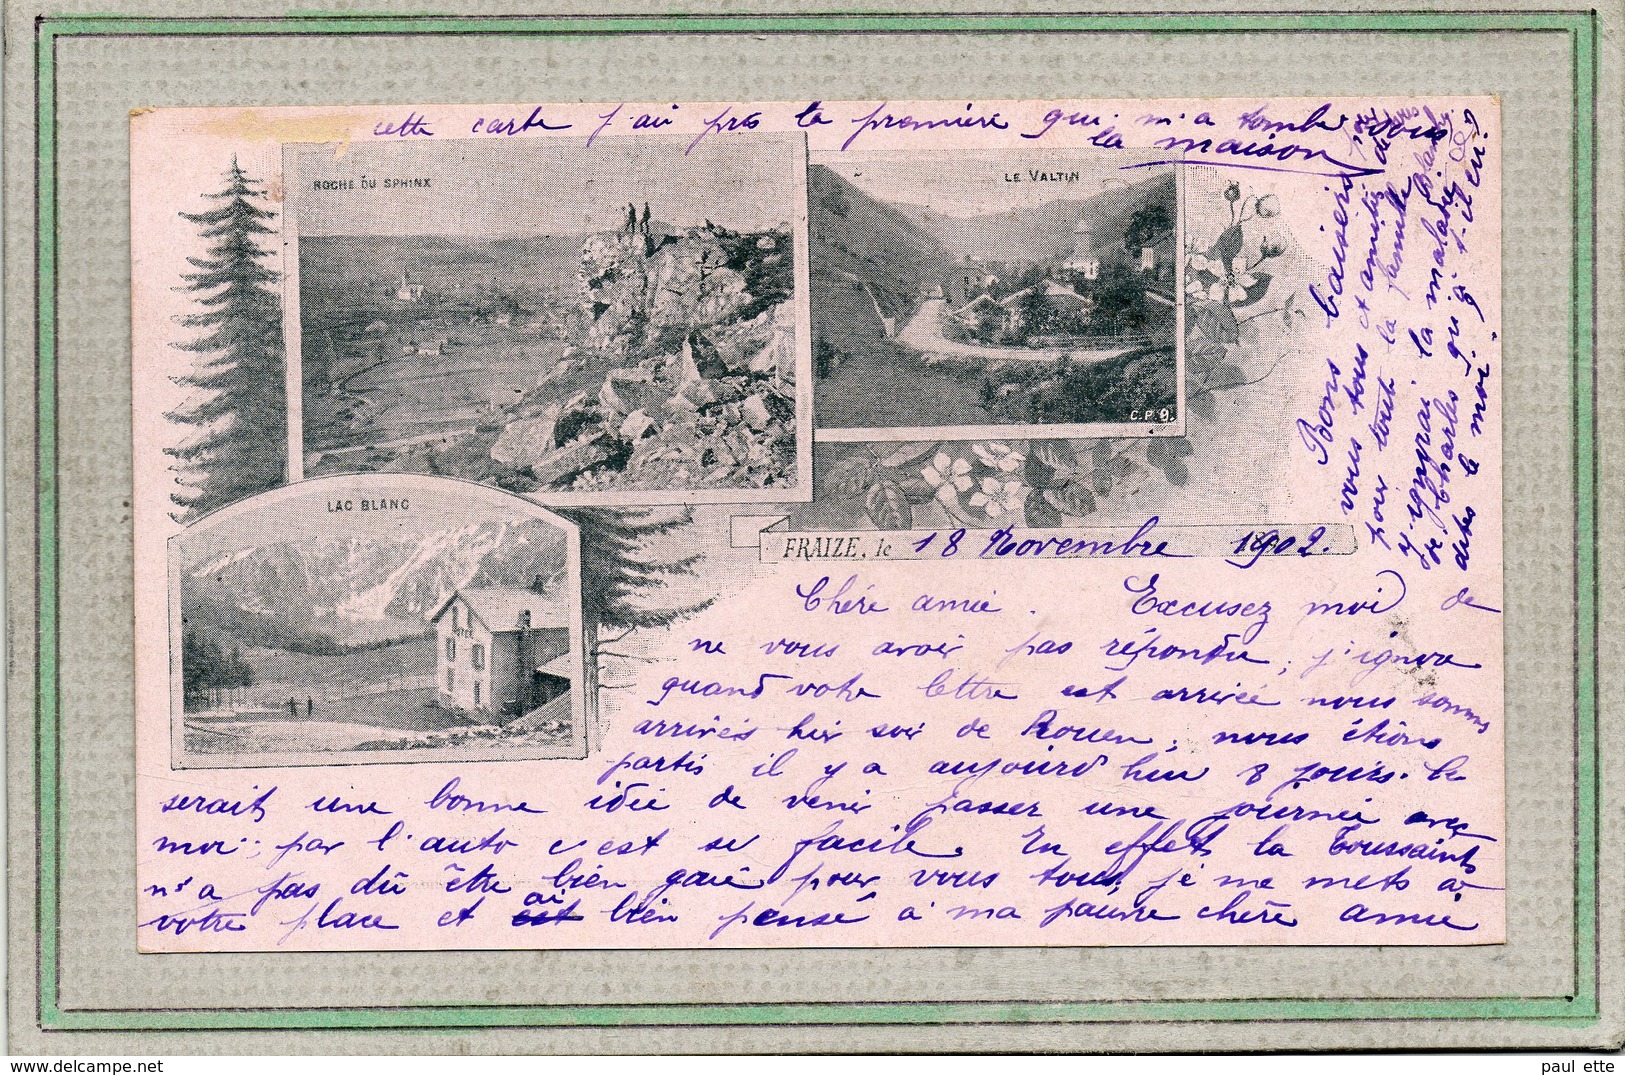 cette carte j'ai pris la première qui m'a tombé sous
la maison
ROCHE DU SPHINX
LE VALTIN
C.P.9.
LAC BLANC
HOTEL
FRAIZE, le 18 Novembre 1902.
Chère amie. Excusez moi de
ne vous avoir pas répondu, j'ignore
quand votre lettre est arrivée nous sommes
arrivés hier soir de Rouen, nous étions
partis il y a aujourd'hui 8 jours. Ce
serait une bonne idée de venir passer une journée avec
moi, par l'auto c'est si facile. En effet la Toussaint
n'a pas dû être bien gaie pour vous tous, je me mets à
votre place et ai bien pensé à ma pauvre chère amie
Bons baisers pour
vous tous et amitiés de
pour toute la famille
J'ignorai la maladie
de Charles qu'a-t-il eu?
dites le moi?
paul ette